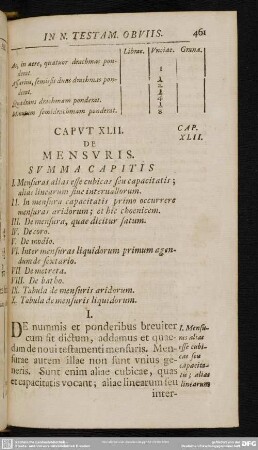 IN N. TESTAM. OBVIIS. 461
Librae. Vnciae. Grana.
As, in aere, quatuor drachmas pon-
derat. 1
Assarius, semissis duas drachmas pon-
derat. 1/2
Quadrans drachmam ponderat. 1/4
semidrachmam ponderat. 1/8
CAPVT XLII. CAP. XLII.
DE
MENSVRIS.
SVMMA CAPITIS
I. Mensuras alias esse cubicas seu capacitatis;
alias linearum siue interuallorum.
II. In mensura capacitatis primo occurrere
mensuras aridorum; et hic choenicem.
III. De mensura, quae dicitur satum.
IV. De coro.
V. De modio.
VI. Inter mensuras liquidorum primum agen-
dum de sextario.
VII. De metreta.
VIII. De batho.
IX. Tabula de mensuris aridorum.
X. Tabula de mensuris liquidorum.
I.
DE nummis et ponderibus breuiter
cum sit dictum, addamus et quae-
dam de noui testamenti mensuris. Men-
surae autem illae non sunt vnius ge-
neris. Sunt enim aliae cubicae, quas
et capacitatis vocant; aliae linearum seu
inter-
I. Mensu-
ras alias
esse cubi-
cas seu
capacita-
tis; alias
linearum